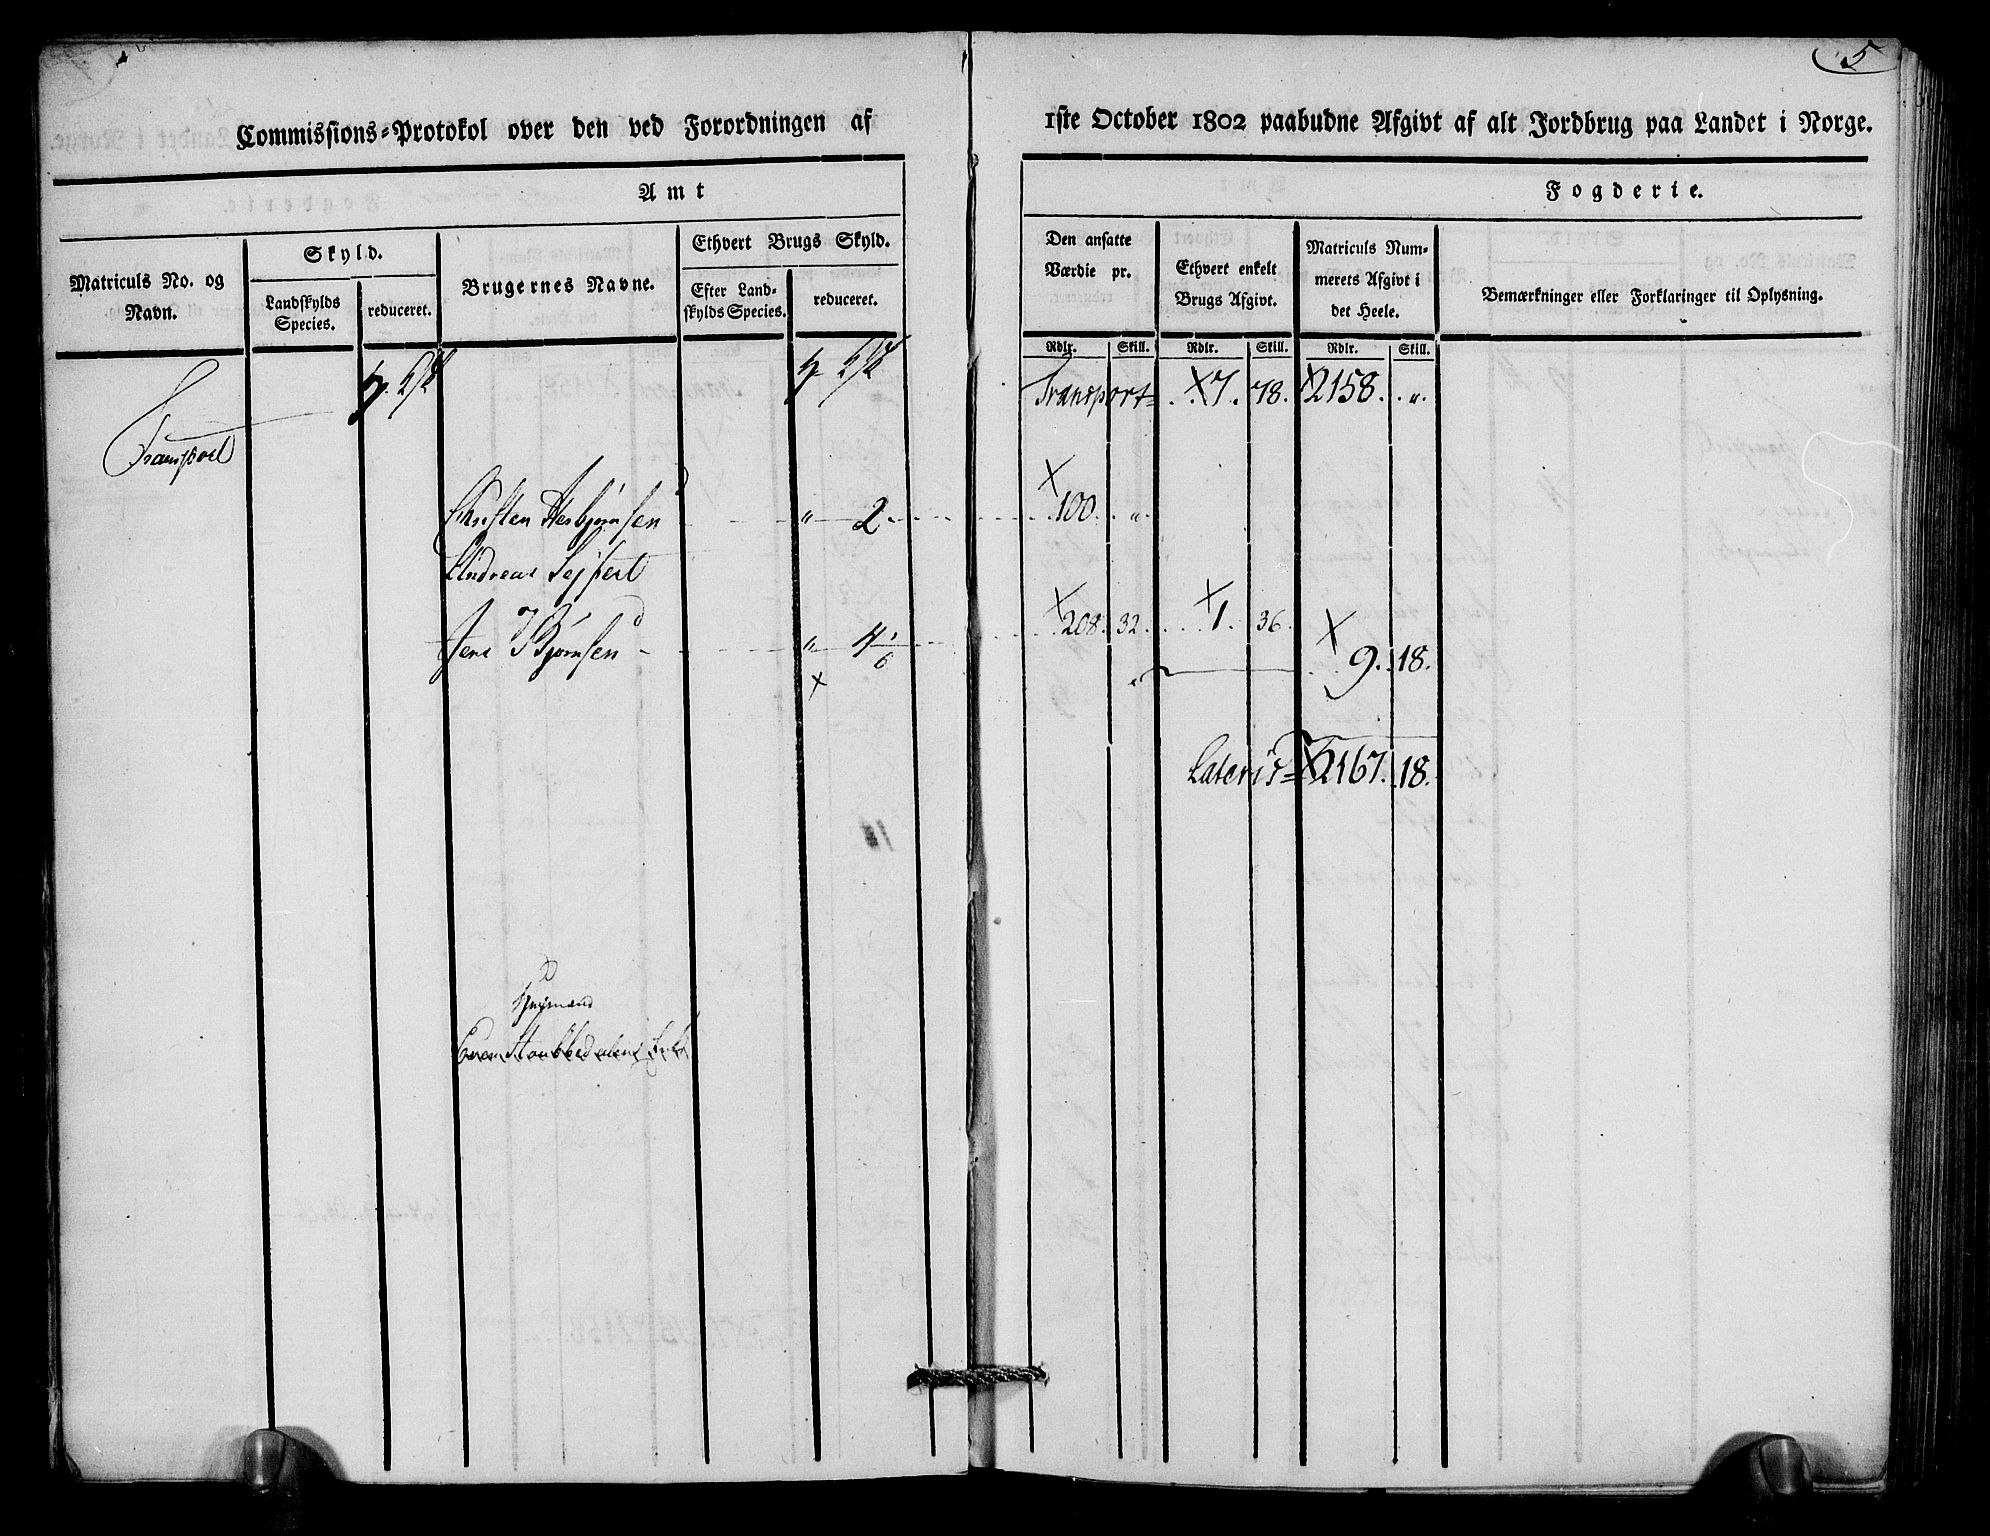 5
Commissions-Protokol over den ved Forordningen af 1ste October 1802 paabudne Afgivt af alt Jordbrug paa Landet i Norge.
Amt
Fogderie.
Matriculs No. og
Navn.
Skyld.
Landskylds
Species.
reduceret.
Brugernes Navne.
Ethvert Brugs Skyld.
Efter Land-
skylds Species.
reduceret.
Den ansatte
Værdie pr.
Ethvert enkelt
Brugs Afgivt.
Matriculs Num-
merets Afgivt i
det Heele.
Bemærkninger eller Forklaringer til Oplysning.
Rdlr. Skill. Rdlr. Skill. Rdlr. Skill.
Transport
Transport = 7. 78. 2158. "
Christen Asbjørnsen " 2 100. "
Andreas Sejfert
Jens Bjørnsen " 4 1/6 208. 32. 1. 36.
" 9. 18.
Lateris = 2167. 18.